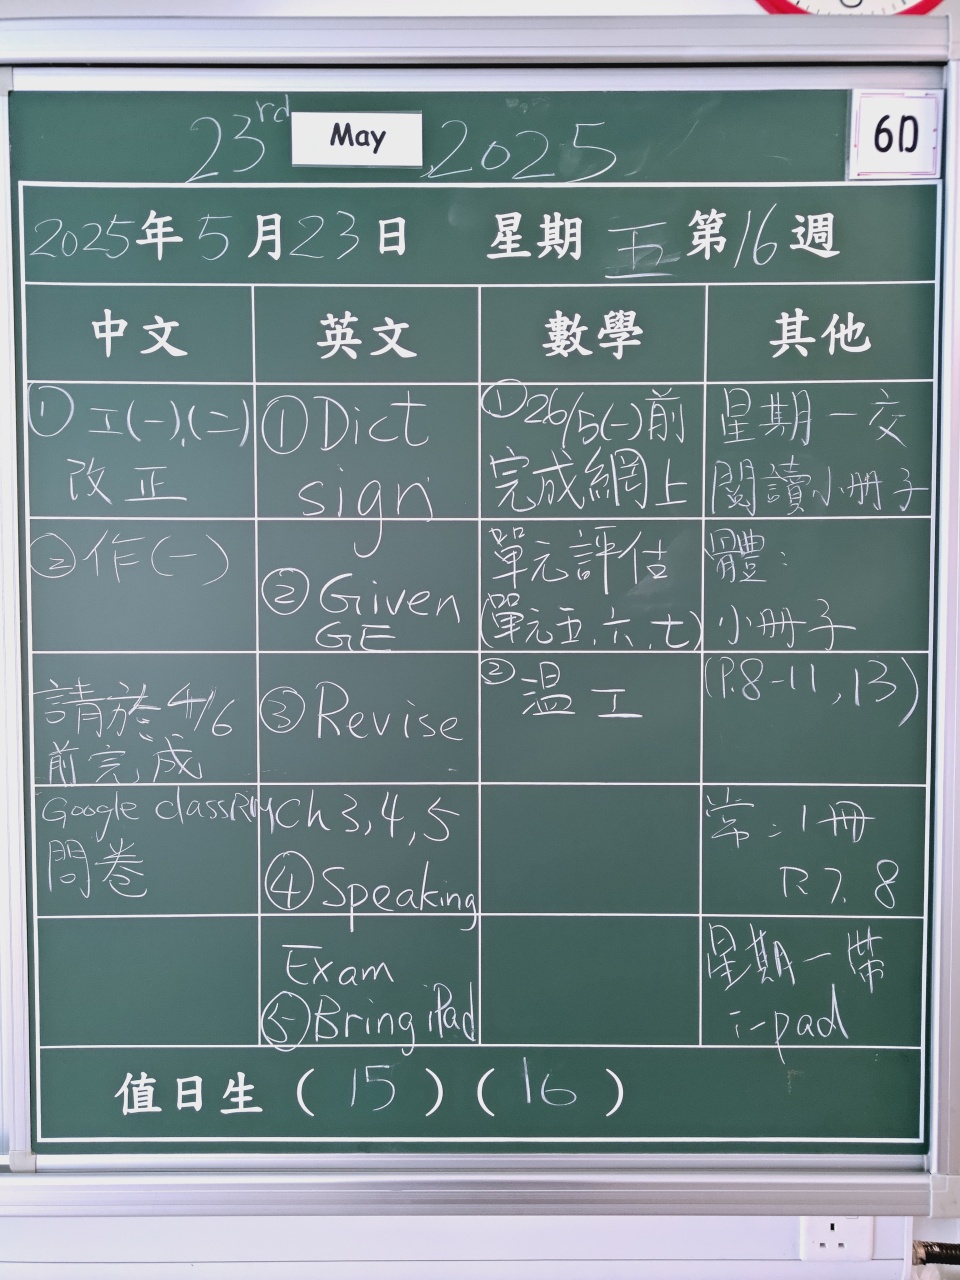 23rd May, 2025
6D
2025年5月23日 星期五 第16週
中文
①工(一),(二)
改正
②作(一)
請於4/6
前完成
Google classRm
問卷
英文
①Dict
sign
②Given
GE
③Revise
Ch 3,4,5
④Speaking
Exam
⑤Bring iPad
數學
①26/5(一)前
完成網上
單元評估
(單元五、六、七)
②溫工
其他
星期一交
閱讀小冊子
體:
小冊子
(P.8-11,13)
常:1冊
P.7、8
星期一帶
i-pad
值日生(15)(16)